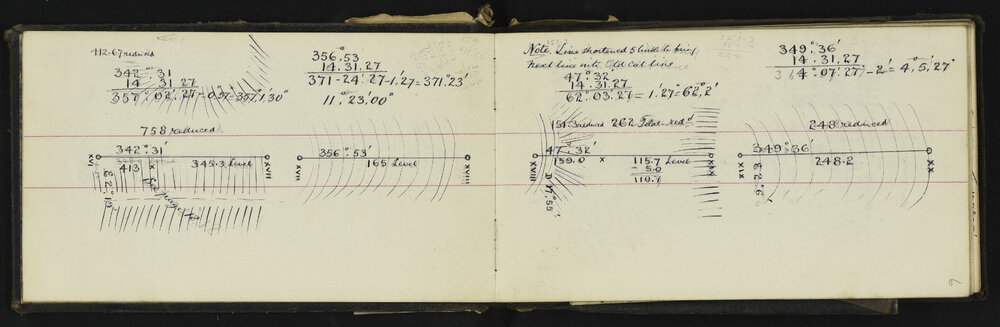 412.67 reduced
342° 31
14 31 27
357° 02.27 - 0.57 = 357° 1.'30"
758 reduced
342° 31'
XVI 413 x 345.3 Level XVII
E 2° 10'
See page
356° 53
14. 31. 27
371 - 24' 27 - 1.'27 = 371° 23'
11° 23' 00"
356° 53'
XVII 165 Level XVIII
Note. Line shortened 5 links to bring
next line into Old Cut Line
47° 32
14° 31. 27
62° 03. 27 = 1.'27 = 62° 2'
151.3 reduced 262 Total redd
47° 32'
XVIII 159.0 x 115.7 Level XIX
5.0
110.7
D 17° 55'
349° 36'
14. 31. 27
364° 07.'27" - 2' = 4° 5' 27"
248 reduced
349° 36'
XIX 248.2 XX
E 2° 6'
6